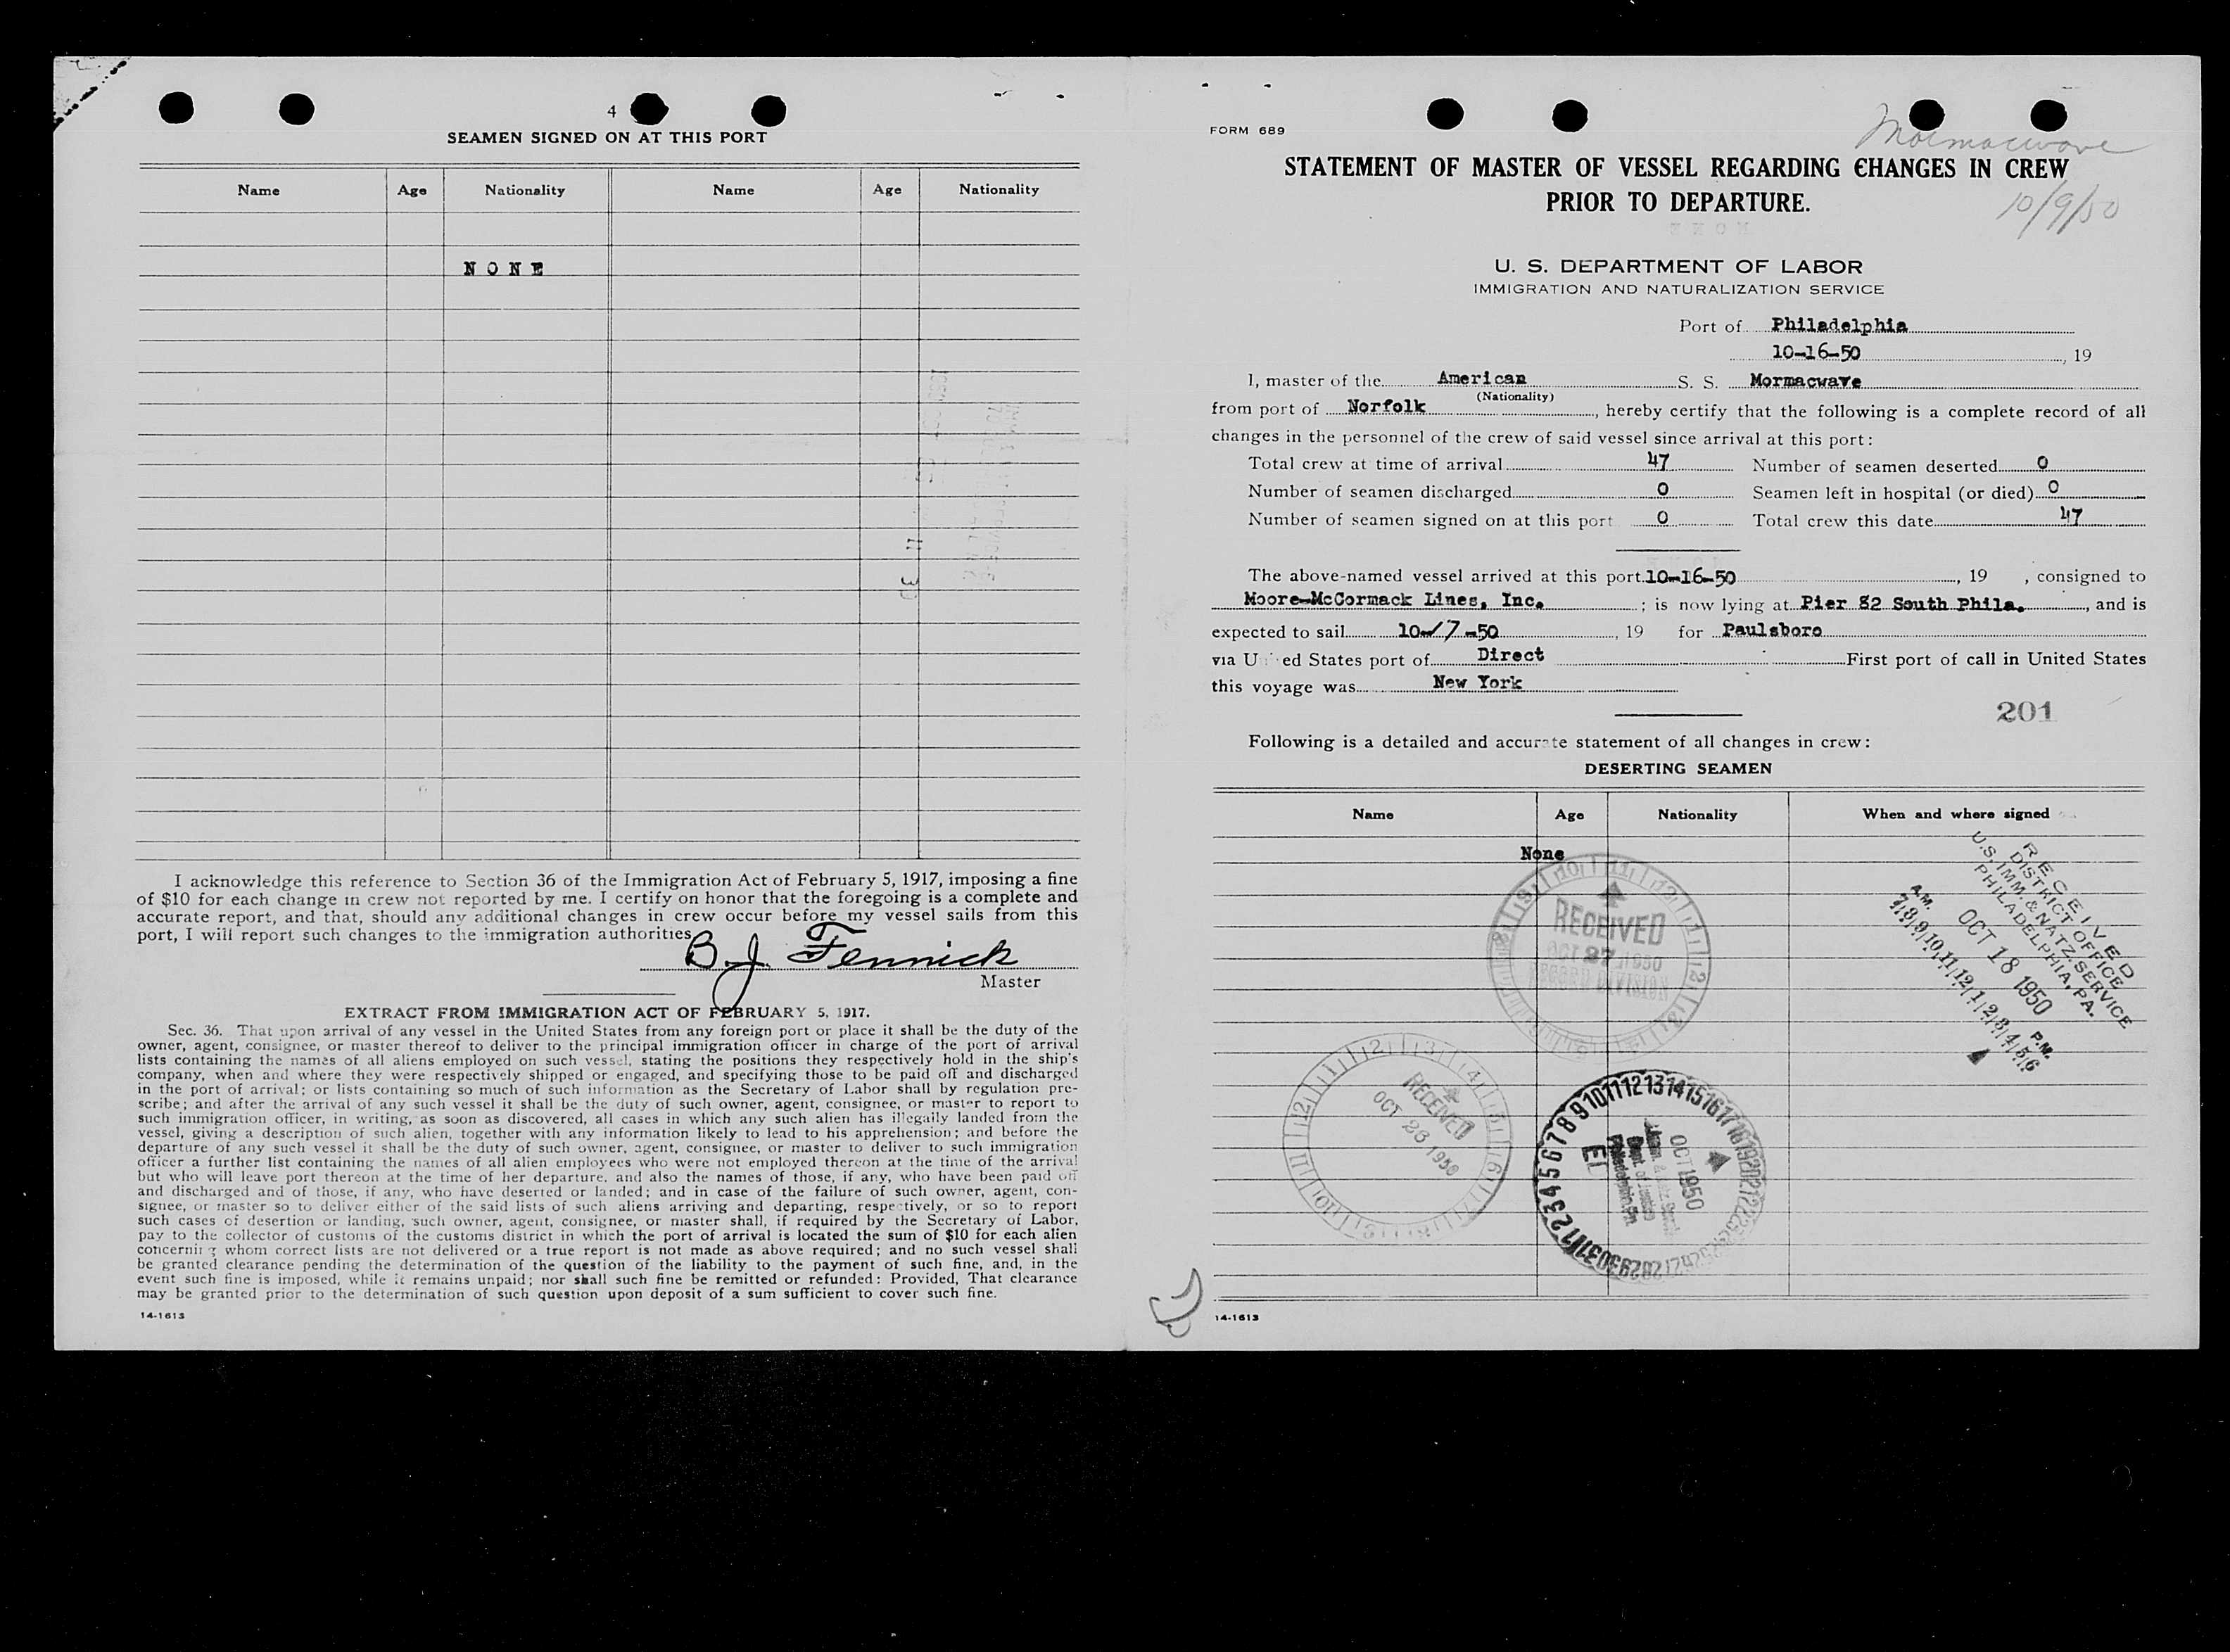 4
SEAMEN SIGNED ON AT THIS PORT
Name Age Nationality Name Age Nationality
NONE
I acknowledge this reference to Section 36 of the Immigration Act of February 5, 1917, imposing a fine
of $10 for each change in crew not reported by me. I certify on honor that the foregoing is a complete and
accurate report, and that, should any additional changes in crew occur before my vessel sails from this
port, I will report such changes to the immigration authorities.
B. J. Fennick
Master
EXTRACT FROM IMMIGRATION ACT OF FEBRUARY 5, 1917.
Sec. 36. That upon arrival of any vessel in the United States from any foreign port or place it shall be the duty of the
owner, agent, consignee, or master thereof to deliver to the principal immigration officer in charge of the port of arrival
lists containing the names of all aliens employed on such vessel, stating the positions they respectively hold in the ship's
company, when and where they were respectively shipped or engaged, and specifying those to be paid off and discharged
in the port of arrival; or lists containing so much of such information as the Secretary of Labor shall by regulation pre-
scribe; and after the arrival of any such vessel it shall be the duty of such owner, agent, consignee, or master to report to
such immigration officer, in writing, as soon as discovered, all cases in which any such alien has illegally landed from the
vessel, giving a description of such alien, together with any information likely to lead to his apprehension; and before the
departure of any such vessel it shall be the duty of such owner, agent, consignee, or master to deliver to such immigration
officer a further list containing the names of all alien employees who were not employed thereon at the time of the arrival
but who will leave port thereon at the time of her departure, and also the names of those, if any, who have been paid off
and discharged and of those, if any, who have deserted or landed; and in case of the failure of such owner, agent, con-
signee, or master so to deliver either of the said lists of such aliens arriving and departing, respectively, or so to report
such cases of desertion or landing, such owner, agent, consignee, or master shall, if required by the Secretary of Labor,
pay to the collector of customs of the customs district in which the port of arrival is located the sum of $10 for each alien
concerning whom correct lists are not delivered or a true report is not made as above required; and no such vessel shall
be granted clearance pending the determination of the question of the liability to the payment of such fine, and, in the
event such fine is imposed, while it remains unpaid; nor shall such fine be remitted or refunded: Provided, That clearance
may be granted prior to the determination of such question upon deposit of a sum sufficient to cover such fine.
14-1613
FORM 689
Mormacwave
STATEMENT OF MASTER OF VESSEL REGARDING CHANGES IN CREW
PRIOR TO DEPARTURE.
10/9/50
U. S. DEPARTMENT OF LABOR
IMMIGRATION AND NATURALIZATION SERVICE
Port of Philadelphia
10-16-50, 19
I, master of the American S. S. Mormacwave
(Nationality)
from port of Norfolk, hereby certify that the following is a complete record of all
changes in the personnel of the crew of said vessel since arrival at this port:
Total crew at time of arrival 47 Number of seamen deserted 0
Number of seamen discharged 0 Seamen left in hospital (or died) 0
Number of seamen signed on at this port 0 Total crew this date 47
The above-named vessel arrived at this port 10-16-50, 19 , consigned to
Moore-McCormack Lines, Inc. ; is now lying at Pier 82 South Phila., and is
expected to sail 10-17-50, 19 for Paulsboro
via United States port of Direct First port of call in United States
this voyage was New York
201
Following is a detailed and accurate statement of all changes in crew:
DESERTING SEAMEN
Name Age Nationality When and where signed
None
RECEIVED
DISTRICT OFFICE
U.S. IMM. & NATZ. SERVICE
PHILADELPHIA, PA.
OCT 18 1950
A.M. P.M.
7 8 9 10 11 12 1 2 3 4 5 6
RECEIVED
OCT 27 1950
RECORD DIVISION
RECEIVED
OCT 26 1950
OCT 1950
14-1613